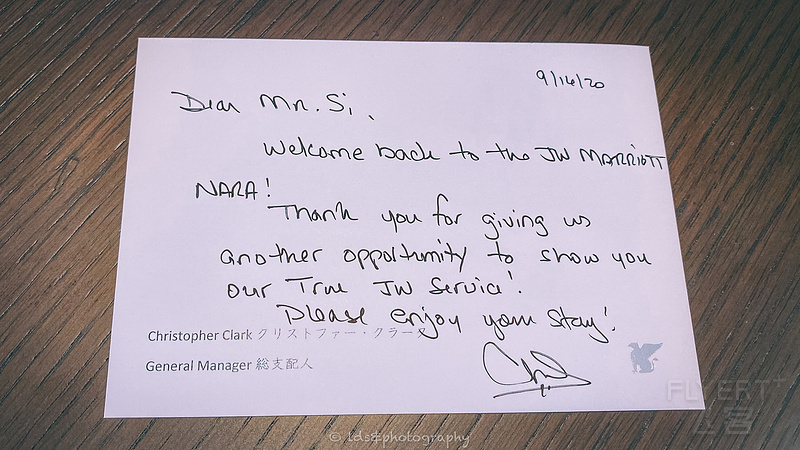 9/16/20
Dear Mr. Si,
Welcome back to the JW MARRIOTT
NARA!
Thank you for giving us
another opportunity to show you
our True JW Service!
Please enjoy your stay!
Christopher Clark クリストファー・クラーク
General Manager 総支配人
FLYERT+
© lds&photography